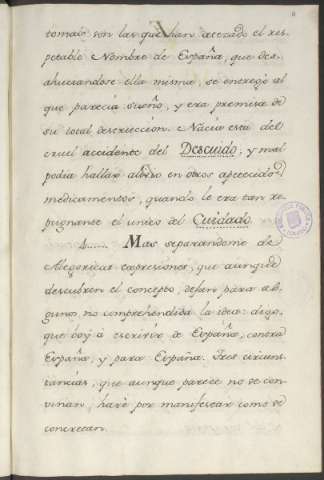 tomaìs son las que han atezado el res-
petable Nombre de España, que des-
ahuciandose ella misma, se entregó al
que parecia sueño, y era premisa de
su total destruccion. Nacia esta del
cruel accidente del Descuido; y mal
podia hallar alivio en otros apetecidos
medicamentos, quando le era tan re-
pugnante el unico del Cuidado.
4...... Mas separandome de
Alegoricas expresiones, que aunque
descubren el concepto, dejan para al-
gunos no comprehendida la idea: digo,
que boy à escrivir de España, contra
España, y para España. Tres circuns-
tancias, que aunque parece no se con-
vinan, haré por manifestar como se
concretan.